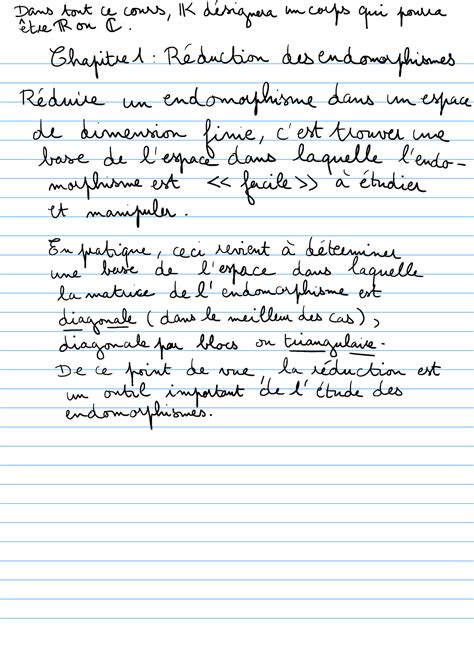 Dans tout ce cours, 𝕂 désignera un corps qui pourra
être ℝ ou ℂ.
Chapitre 1 : Réduction des endomorphismes
Réduire un endomorphisme dans un espace
de dimension finie, c'est trouver une
base de l'espace dans laquelle l'endo-
morphisme est << facile >> à étudier
et manipuler.
En pratique, ceci revient à déterminer
une base de l'espace dans laquelle
la matrice de l'endomorphisme est
diagonale (dans le meilleur des cas),
diagonale par blocs ou triangulaire.
De ce point de vue, la réduction est
un outil important de l'étude des
endomorphismes.